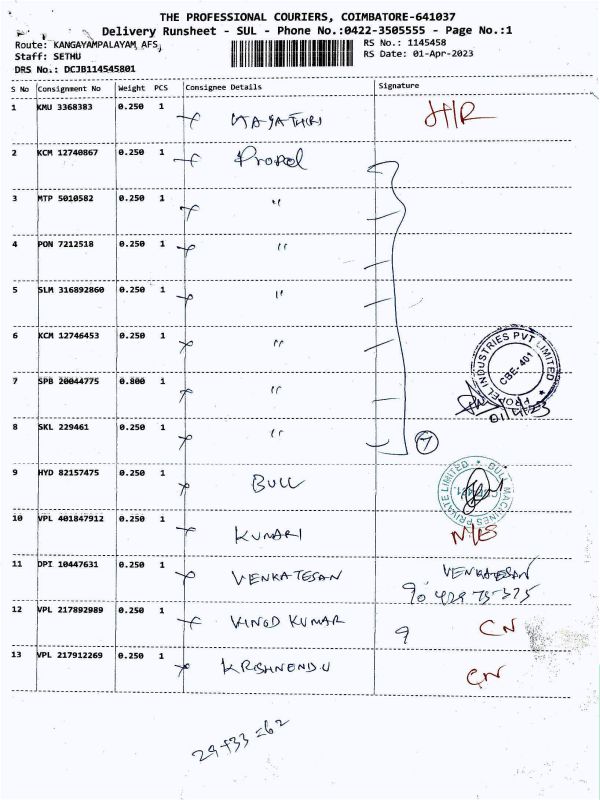 THE PROFESSIONAL COURIERS, COIMBATORE-641037
Delivery Runsheet - SUL - Phone No.:0422-3505555 - Page No.:1
Route: KANGAYAMPALAYAM, AFS, RS No.: 1145458
Staff: SETHU RS Date: 01-Apr-2023
DRS No.: DCJB114545801
S No Consignment No Weight PCS Consignee Details Signature
1 KMU 3368383 0.250 1 GAYATHRI H/R
2 KCM 12740867 0.250 1 Propel
3 MTP 5010582 0.250 1 "
4 PON 7212518 0.250 1 "
5 SLM 316892860 0.250 1 "
6 KCM 12746453 0.250 1 "
PROPEL INDUSTRIES PVT LIMITED
CBE-401
7 SPB 20044775 0.800 1 "
8 SKL 229461 0.250 1 " 7
9 HYD 82157475 0.250 1 BULL
BULL MACHINES PRIVATE LIMITED
10 VPL 401847912 0.250 1 KUMARI
11 DPI 10447631 0.250 1 VENKATESAN VENKATESAN
12 VPL 217892989 0.250 1 VINOD KUMAR CN
13 VPL 217912269 0.250 1 KRISHNENDU CN
29+33=62